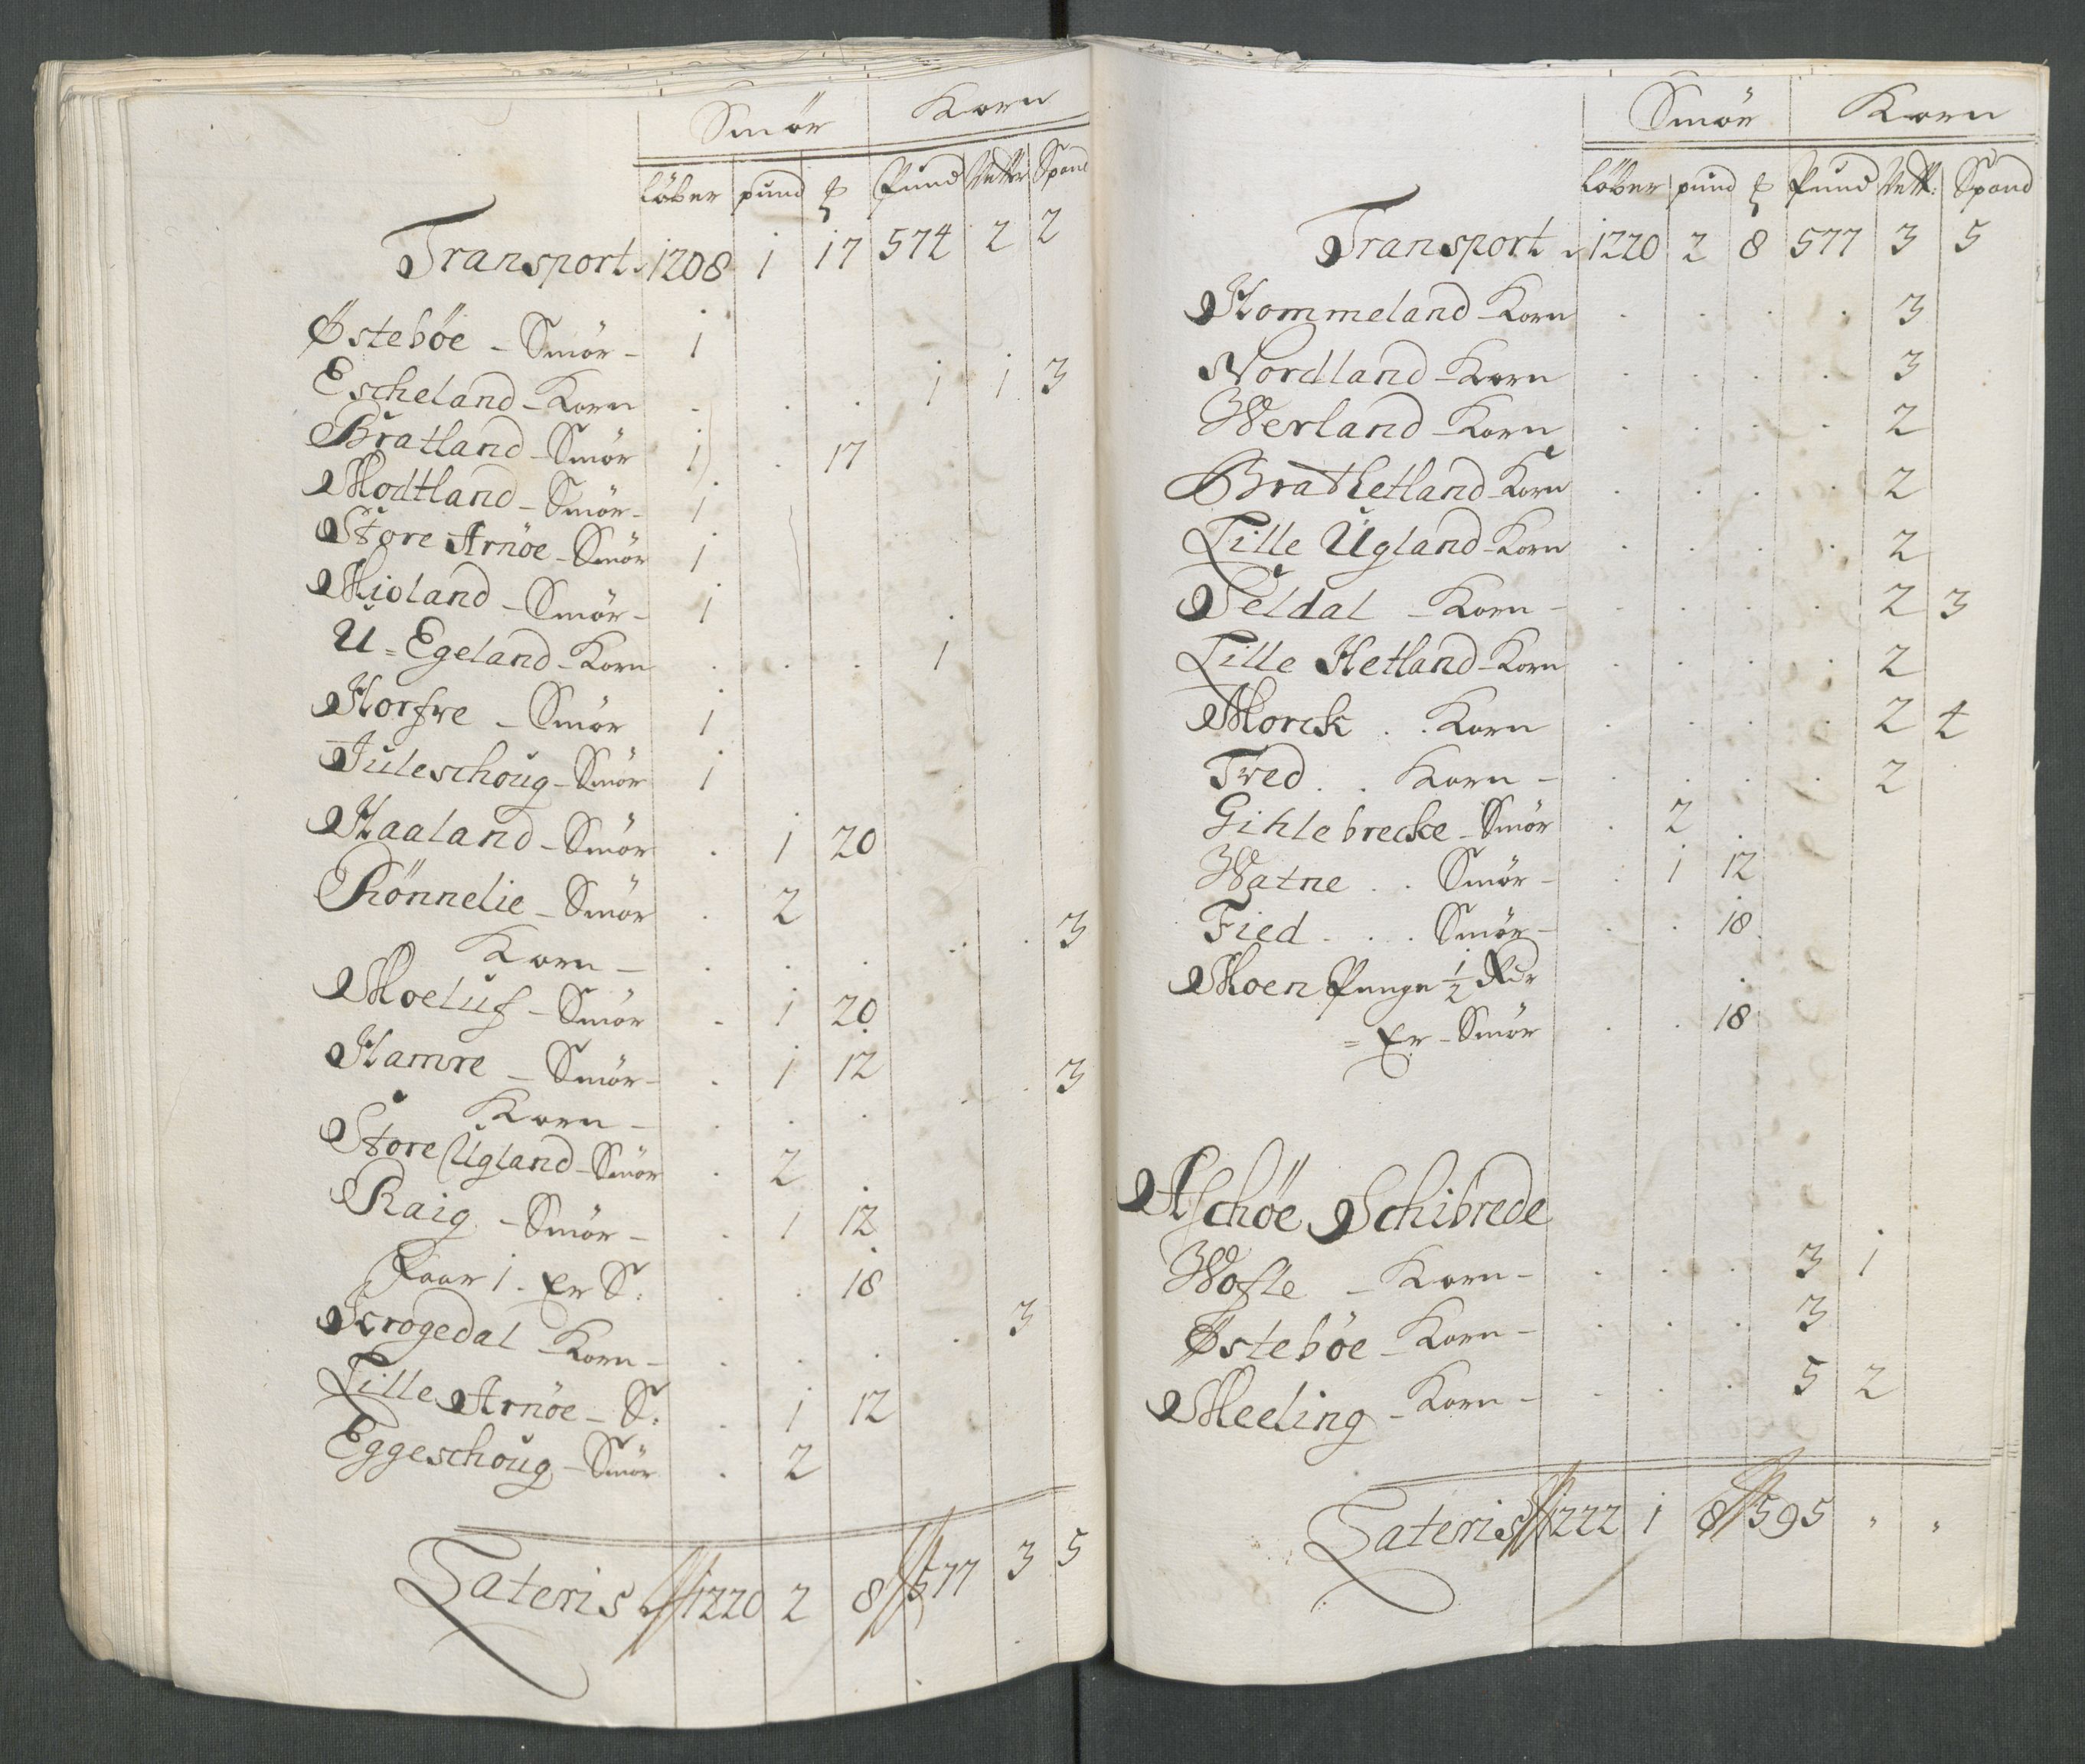 Smör Korn
löber pund ℔ Pund Vetter Spand
Transport 1208 1 17 574 2 2
Östeböe - Smör - 1
Escheland - Korn . . . 1 1 3
Bratland - Smör 1 . 17
Modtland - Smör - 1
Store Arnöe - Smör 1
Mioland - Smör - 1
U = Egeland - Korn . . . 1
Horfve - Smör 1
Juleschoug - Smör 1
Haaland - Smör . 1 20
Rönnelie - Smör . 2
Korn - . . . . . 3
Moeluf - Smör - 1 20
Hamre - Smör - . 1 12
Korn - . . . . . 3
Store Ugland - Smör . 2
Raig - Smör - . 1 12
Faar 1 . Er S: . . 18
Scrogedal - Korn - . . . . 3
Lille Arnöe - S: . 1 12
Eggeschoug - Smör . 2
Lateris 1220 2 8 577 3 5
Smör Korn
löber pund ℔ Pund Vett: Spand
Transport 1220 2 8 577 3 5
Hommeland - Korn . . . . 3
Nordland - Korn . . . . 3
Werland - Korn . . . . 2
Brathetland - Korn . . . . 2
Lille Ugland - Korn . . . . 2
Seldal - Korn - . . . . 2 3
Lille Hetland - Korn . . . . 2
Morck . . Korn . . . . 2 4
Tved . . Korn - . . . . 2
Gihlebrecke - Smör . 2 .
Watne . . Smör - . 1 12
Fied . . . Smör - . . 18
Moen Penge ½ Rdr
= Er - Smör . . 18
Aschöe Schibrede
Wofle - Korn - . . . 3 1
Östeböe - Korn - . . . 3
Meeling - Korn - . . . 5 2
Lateris 1222 1 8 595 " "